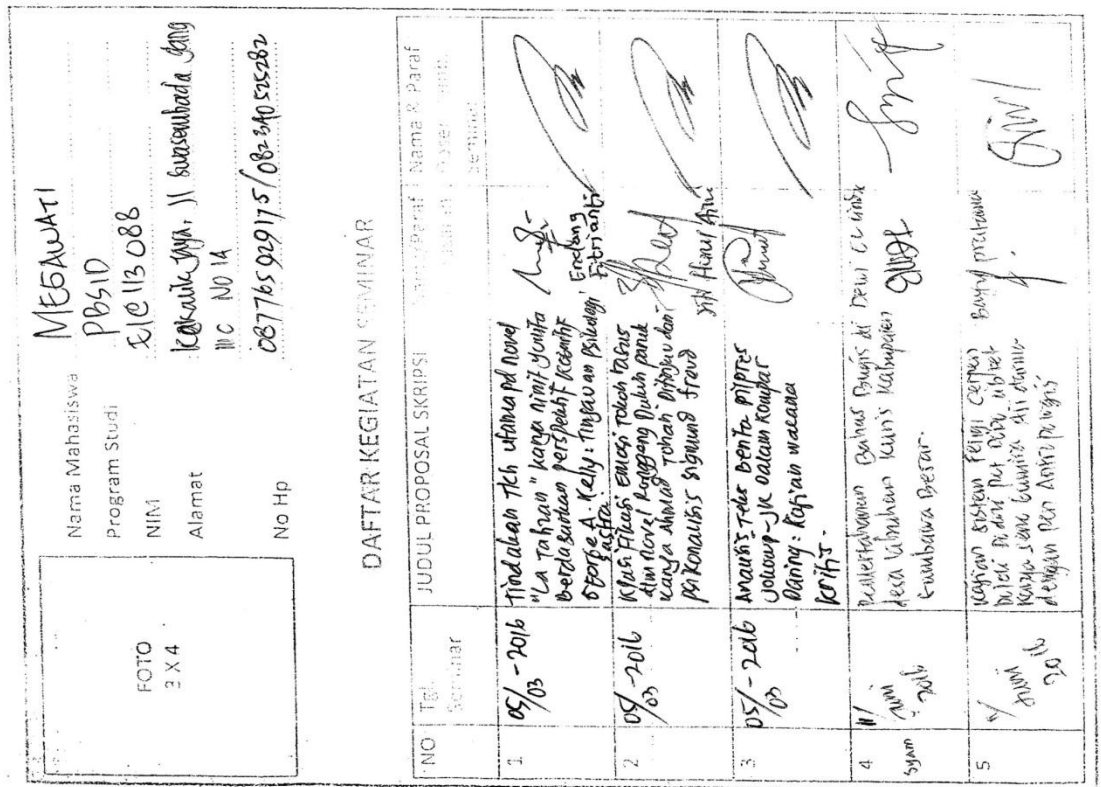 FOTO
3 X 4
Nama Mahasiswa MEGAWATI
Program Studi PBSID
NIM E1C 113 088
Alamat Kekalik jaya, Jl swasembada gang
III C NO 14
No Hp 087765929175/082340525282
DAFTAR KEGIATAN SEMINAR
NO
Tgl
Seminar
JUDUL PROPOSAL SKRIPSI
Nama & Paraf
1
05/03-2016
Tindakan tkh utama pd novel
"La Tahzan" karya nimit yunita
berdasarkan perspektif kognitif
George A. Kelly: Tinjauan psikologi
sastra.
Endang
Fitrianti
2
05/03-2016
Klasifikasi emosi tokoh rasus
dlm novel Ronggeng Dukuh paruk
karya Ahmad Tohari ditinjau dari
psikonalisis sigmund freud
3
05/03-2016
Analisis Teks Berita Pilpres
Jokowi-JK Dalam Kompas
Daring: Kajian wacana
kritis.
4
syam
11/
Juni
2016
Pemertahanan Bahasa Bugis di
desa Labuhan Kuris Kabupaten
Sumbawa Besar.
Dewi
5
Juni
2016
Kajian sistem
karya
dengan
Bayu pratama